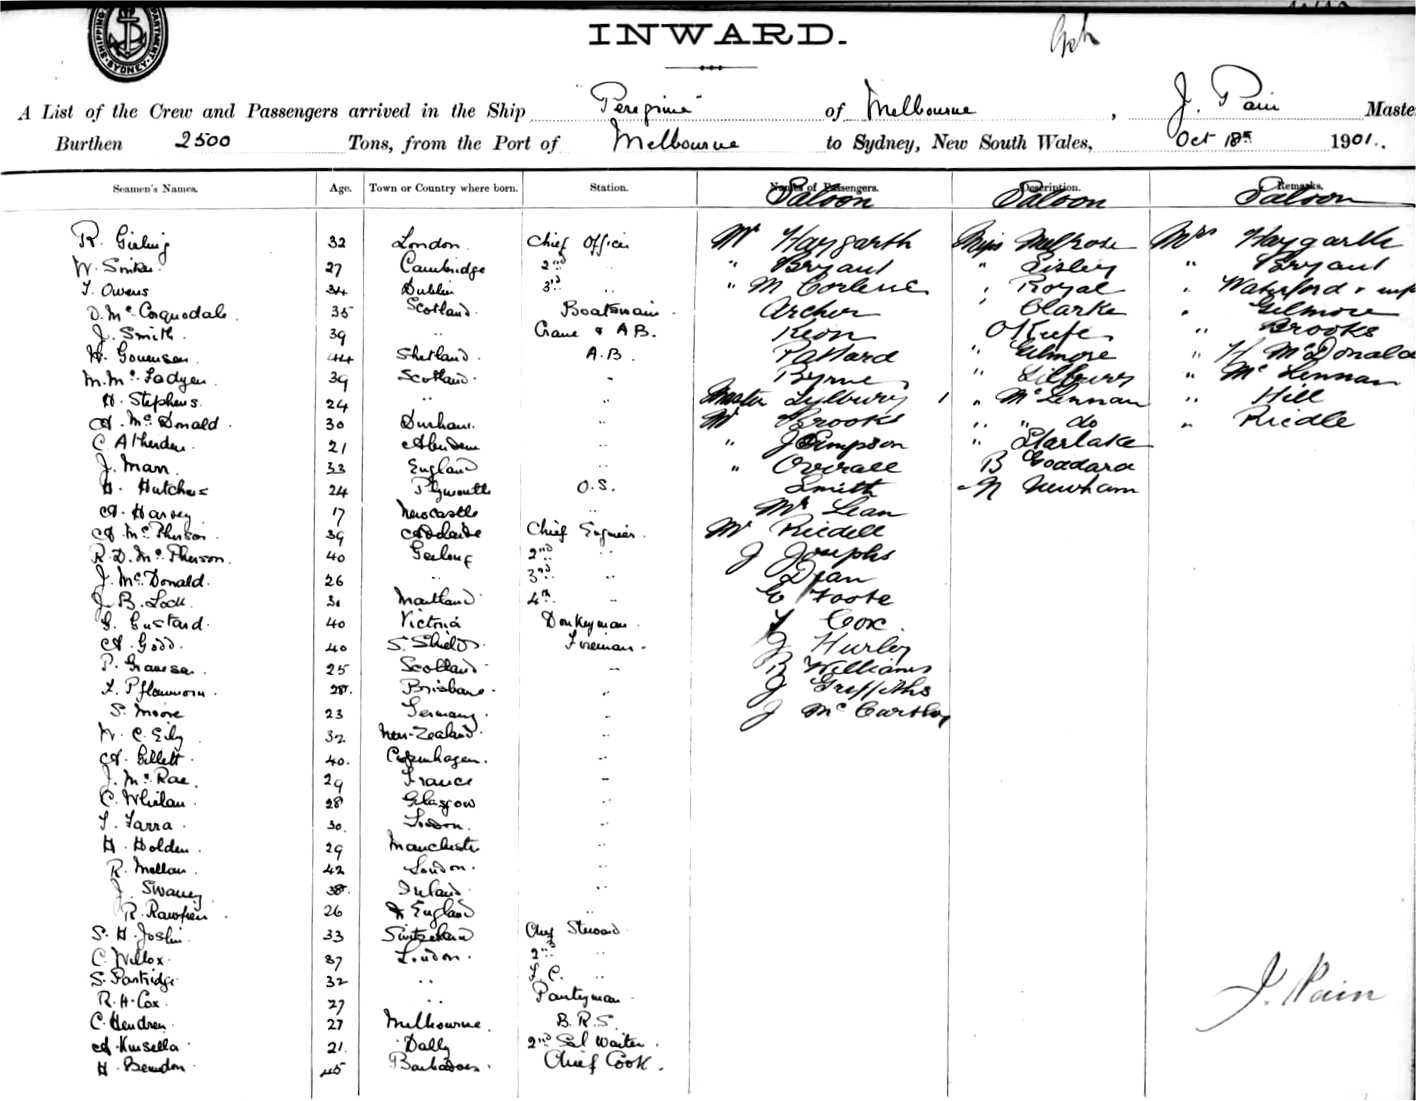 SHIPPING DEPARTMENT. SYDNEY.
INWARD.
A List of the Crew and Passengers arrived in the Ship "Peregrine" of Melbourne, J. Pain Maste
Burthen 2500 Tons, from the Port of Melbourne to Sydney, New South Wales, Oct 18th 1901.
Seamen's Names. Age. Town or Country where born. Station. Names of Passengers. Description. Remarks.
Saloon Saloon Saloon
R. Girling 32 London. Chief Officer Mr Haygarth Miss Melrose Mrs Haygarth
W. 27 Cambridge 2nd " " Bryant " Sisley " Bryant
T. Owens 34 Dublin 3rd " " " Royal " Waterford & inf
D. McCorquodale. 35 Scotland. Boatswain. Archer " Clarke " Gilmore
J. Smith. 39 " Crane & A.B. Keon O'Keefe " Brooks
H. 44 Shetland. A.B. Pallard " Gilmore " H McDonald
M. McFadyen. 39 Scotland. " Byrne " " McLennan
H. Stephens. 24 " " Master Lylbury 1 " McLennan " Hill
A. McDonald. 30 Durham. " Mr Brooks " " do " Riedle
C. Atherden. 21 Aberdeen " " J Simpson " Starlake
J. Mann. 33 England " " Overall B Goddard
H. Hutchins 24 Plymouth O.S. Smith " N Newham
A. Harvey 17 Newcastle " McLean
A. McPherson. 39 Adelaide Chief Engineer. Mr Riedell
R. D. McPherson. 40 Geelong 2nd " J Josephs
J. McDonald. 26 " 3rd " Dean
J. B. Lock. 31 Maitland. 4th " E Foote
G. Gustard. 40 Victoria Donkeyman. Cox
A. Good. 40 S. Shields. Fireman. J Hurley
P. 25 Scotland. " B Williams
28. Brisbane. " J Griffiths
S. Moore 23 Germany. " J McCarthy
W. C. 32 New-Zealand. "
A. Gillett. 40. Copenhagen. "
J. McRae. 29 France "
C. Whelan. 28 Glasgow "
T. Farra. 30. London. "
H. Holden. 29 Manchester "
R. Mellan. 42 London. "
J. Swaney 38. Ireland. "
R. 26 England "
S. H. Joslin. 33 Switzerland Chief Steward
C. Willox. 37 London. 2nd "
S. Partridge 32 " F.C. "
R. H. Cox. 27 " Pantryman.
C. Hendren. 27 Melbourne. B.R.S.
A. Kinsella 21. Dally 2nd Sal Waiter.
H. 45 Barbadoes. Chief Cook.
J. Pain